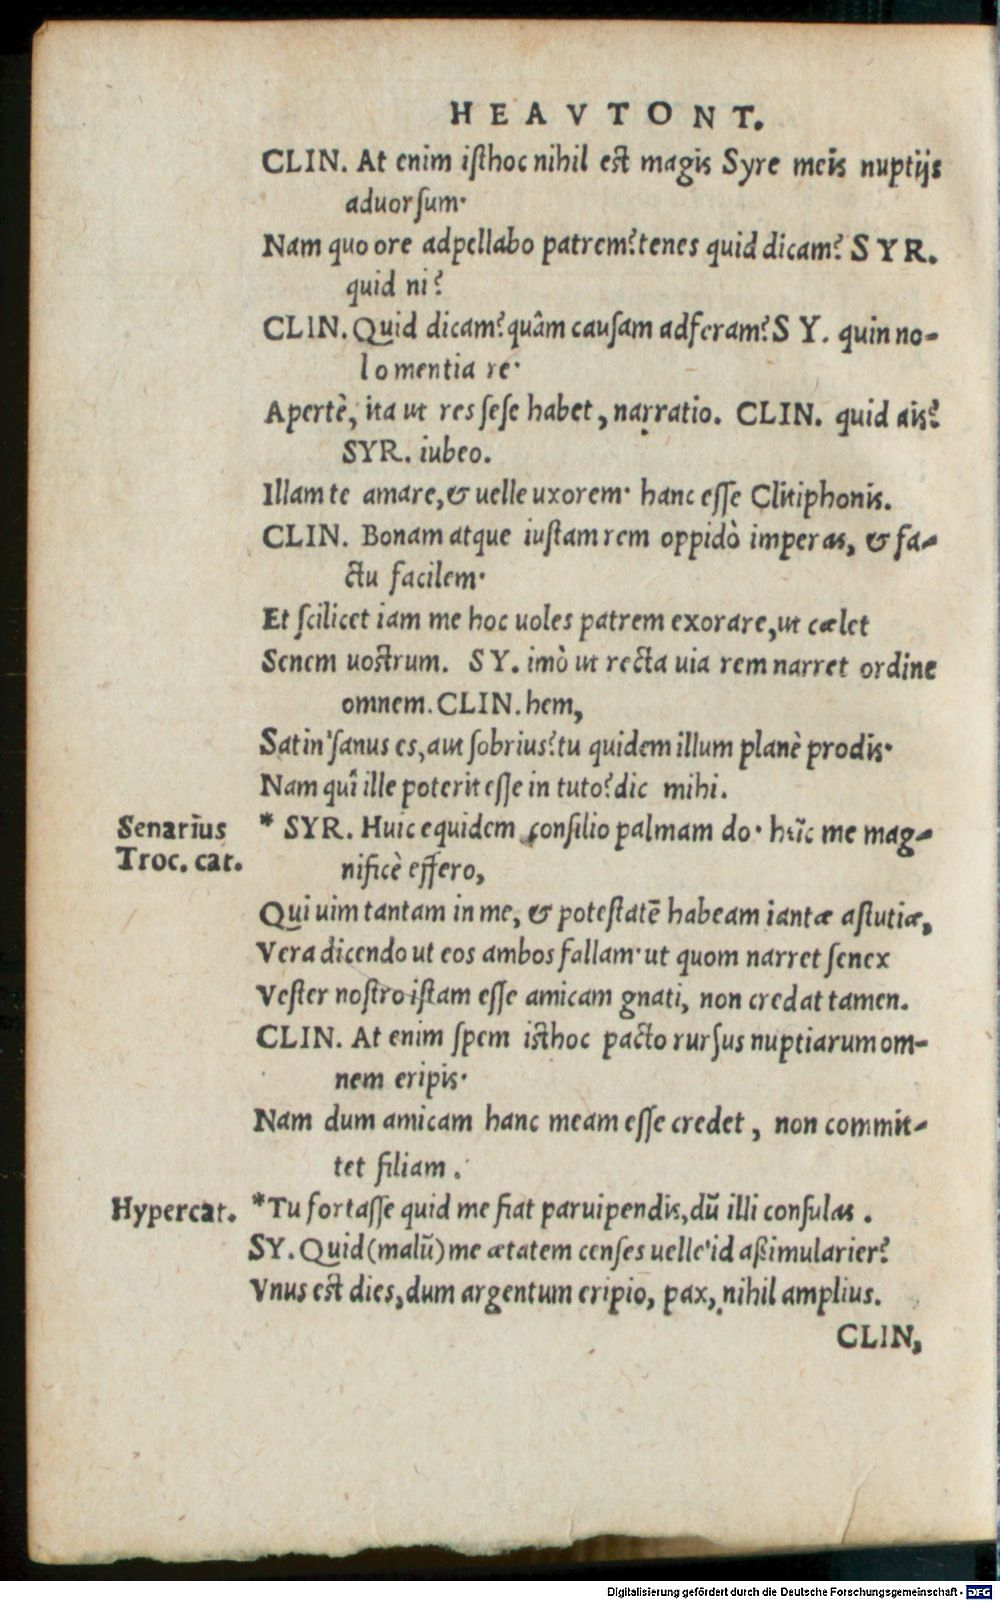 HEAVTONT.
CLIN. At enim isthoc nihil est magis Syre meis nuptijs
aduorsum·
Nam quo ore adpellabo patrem? tenes quid dicam? SYR.
quid ni?
CLIN. Quid dicam? quâm causam adferam? SY. quin no-
lo mentia re·
Apertè, ita ut res sese habet, narratio. CLIN. quid ais?
SYR. iubeo.
Illam te amare, & uelle uxorem· hanc esse Clitiphonis.
CLIN. Bonam atque iustam rem oppidò imperas, & fa-
ctu facilem·
Et scilicet iam me hoc uoles patrem exorare, ut cælet
Senem uostrum. SY. imò ut recta uia rem narret ordine
omnem. CLIN. hem,
Satin' sanus es, aut sobrius? tu quidem illum planè prodis·
Nam quî ille poterit esse in tuto? dic mihi.
Senarius
Troc. cat.
* SYR. Huic equidem consilio palmam do· hîc me mag-
nificè effero,
Qui uim tantam in me, & potestatē habeam tantæ astutiæ,
Vera dicendo ut eos ambos fallam· ut quom narret senex
Vester nostro istam esse amicam gnati, non credat tamen.
CLIN. At enim spem isthoc pacto rursus nuptiarum om-
nem eripis·
Nam dum amicam hanc meam esse credet, non commit-
tet filiam.
Hypercat.
*Tu fortasse quid me fiat paruipendis, dū illi consulas.
SY. Quid (malū) me ætatem censes uelle id aßimularier?
Vnus est dies, dum argentum eripio, pax, nihil amplius.
CLIN,
Digitalisierung gefördert durch die Deutsche Forschungsgemeinschaft - DFG